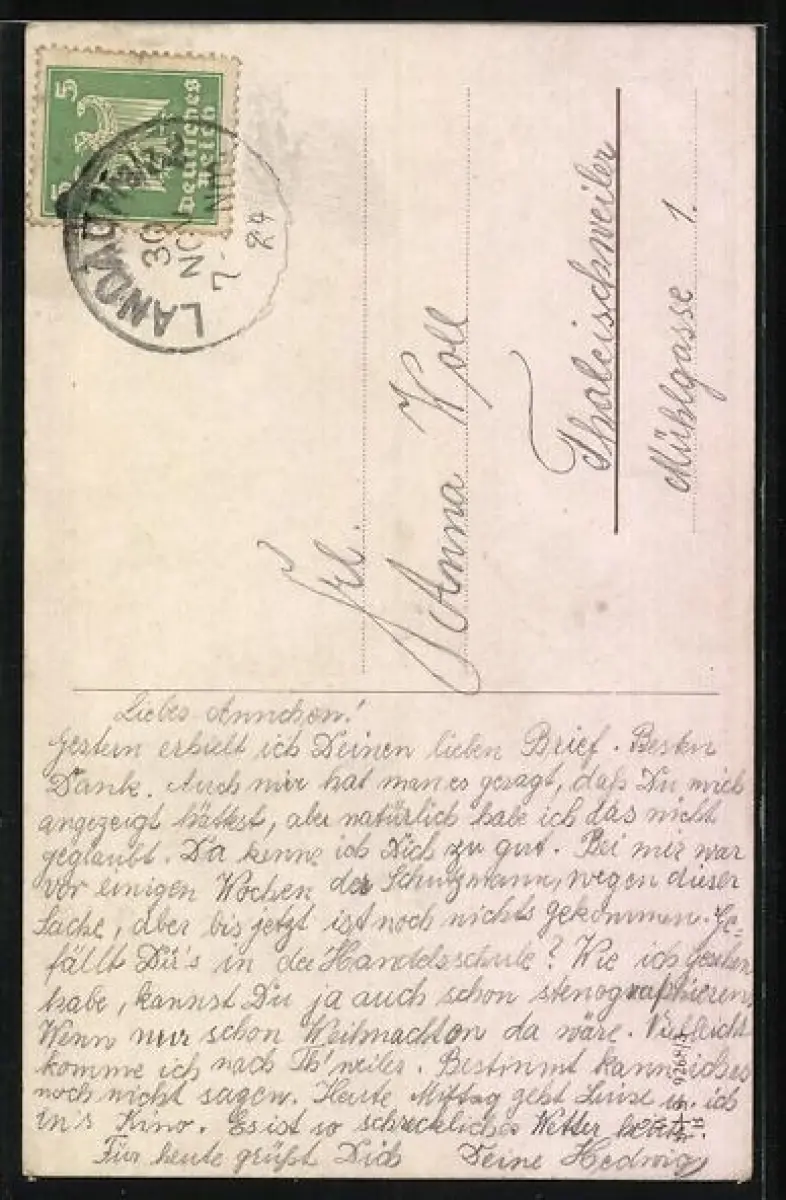 5
5
Deutsches
Reich
LANDAU (Pfalz)
30
NOV
7-
NM
24
Frl.
Anna Koll
Thaleischweiler
Mühlgasse 1.
Liebes Annchen!
Gestern erhielt ich Deinen lieben Brief. Besten
Dank. Auch mir hat man es gesagt, daß Du mich
angezeigt hättest, aber natürlich habe ich das nicht
geglaubt. Da kenne ich Dich zu gut. Bei mir war
vor einigen Wochen der Schutzmann, wegen dieser
Sache, aber bis jetzt ist noch nichts gekommen. Ge-
fällt Dir's in der Handelsschule? Wie ich gesehen
habe, kannst Du ja auch schon stenographieren.
Wenn nur schon Weihnachten da wäre. Vielleicht
komme ich nach Th'weiler. Bestimmt kann ich es
noch nicht sagen. Heute Mittag geht Luise u. ich
in's Kino. Es ist so schreckliches Wetter heute.
Für heute grüßt Dich Deine Hedwig